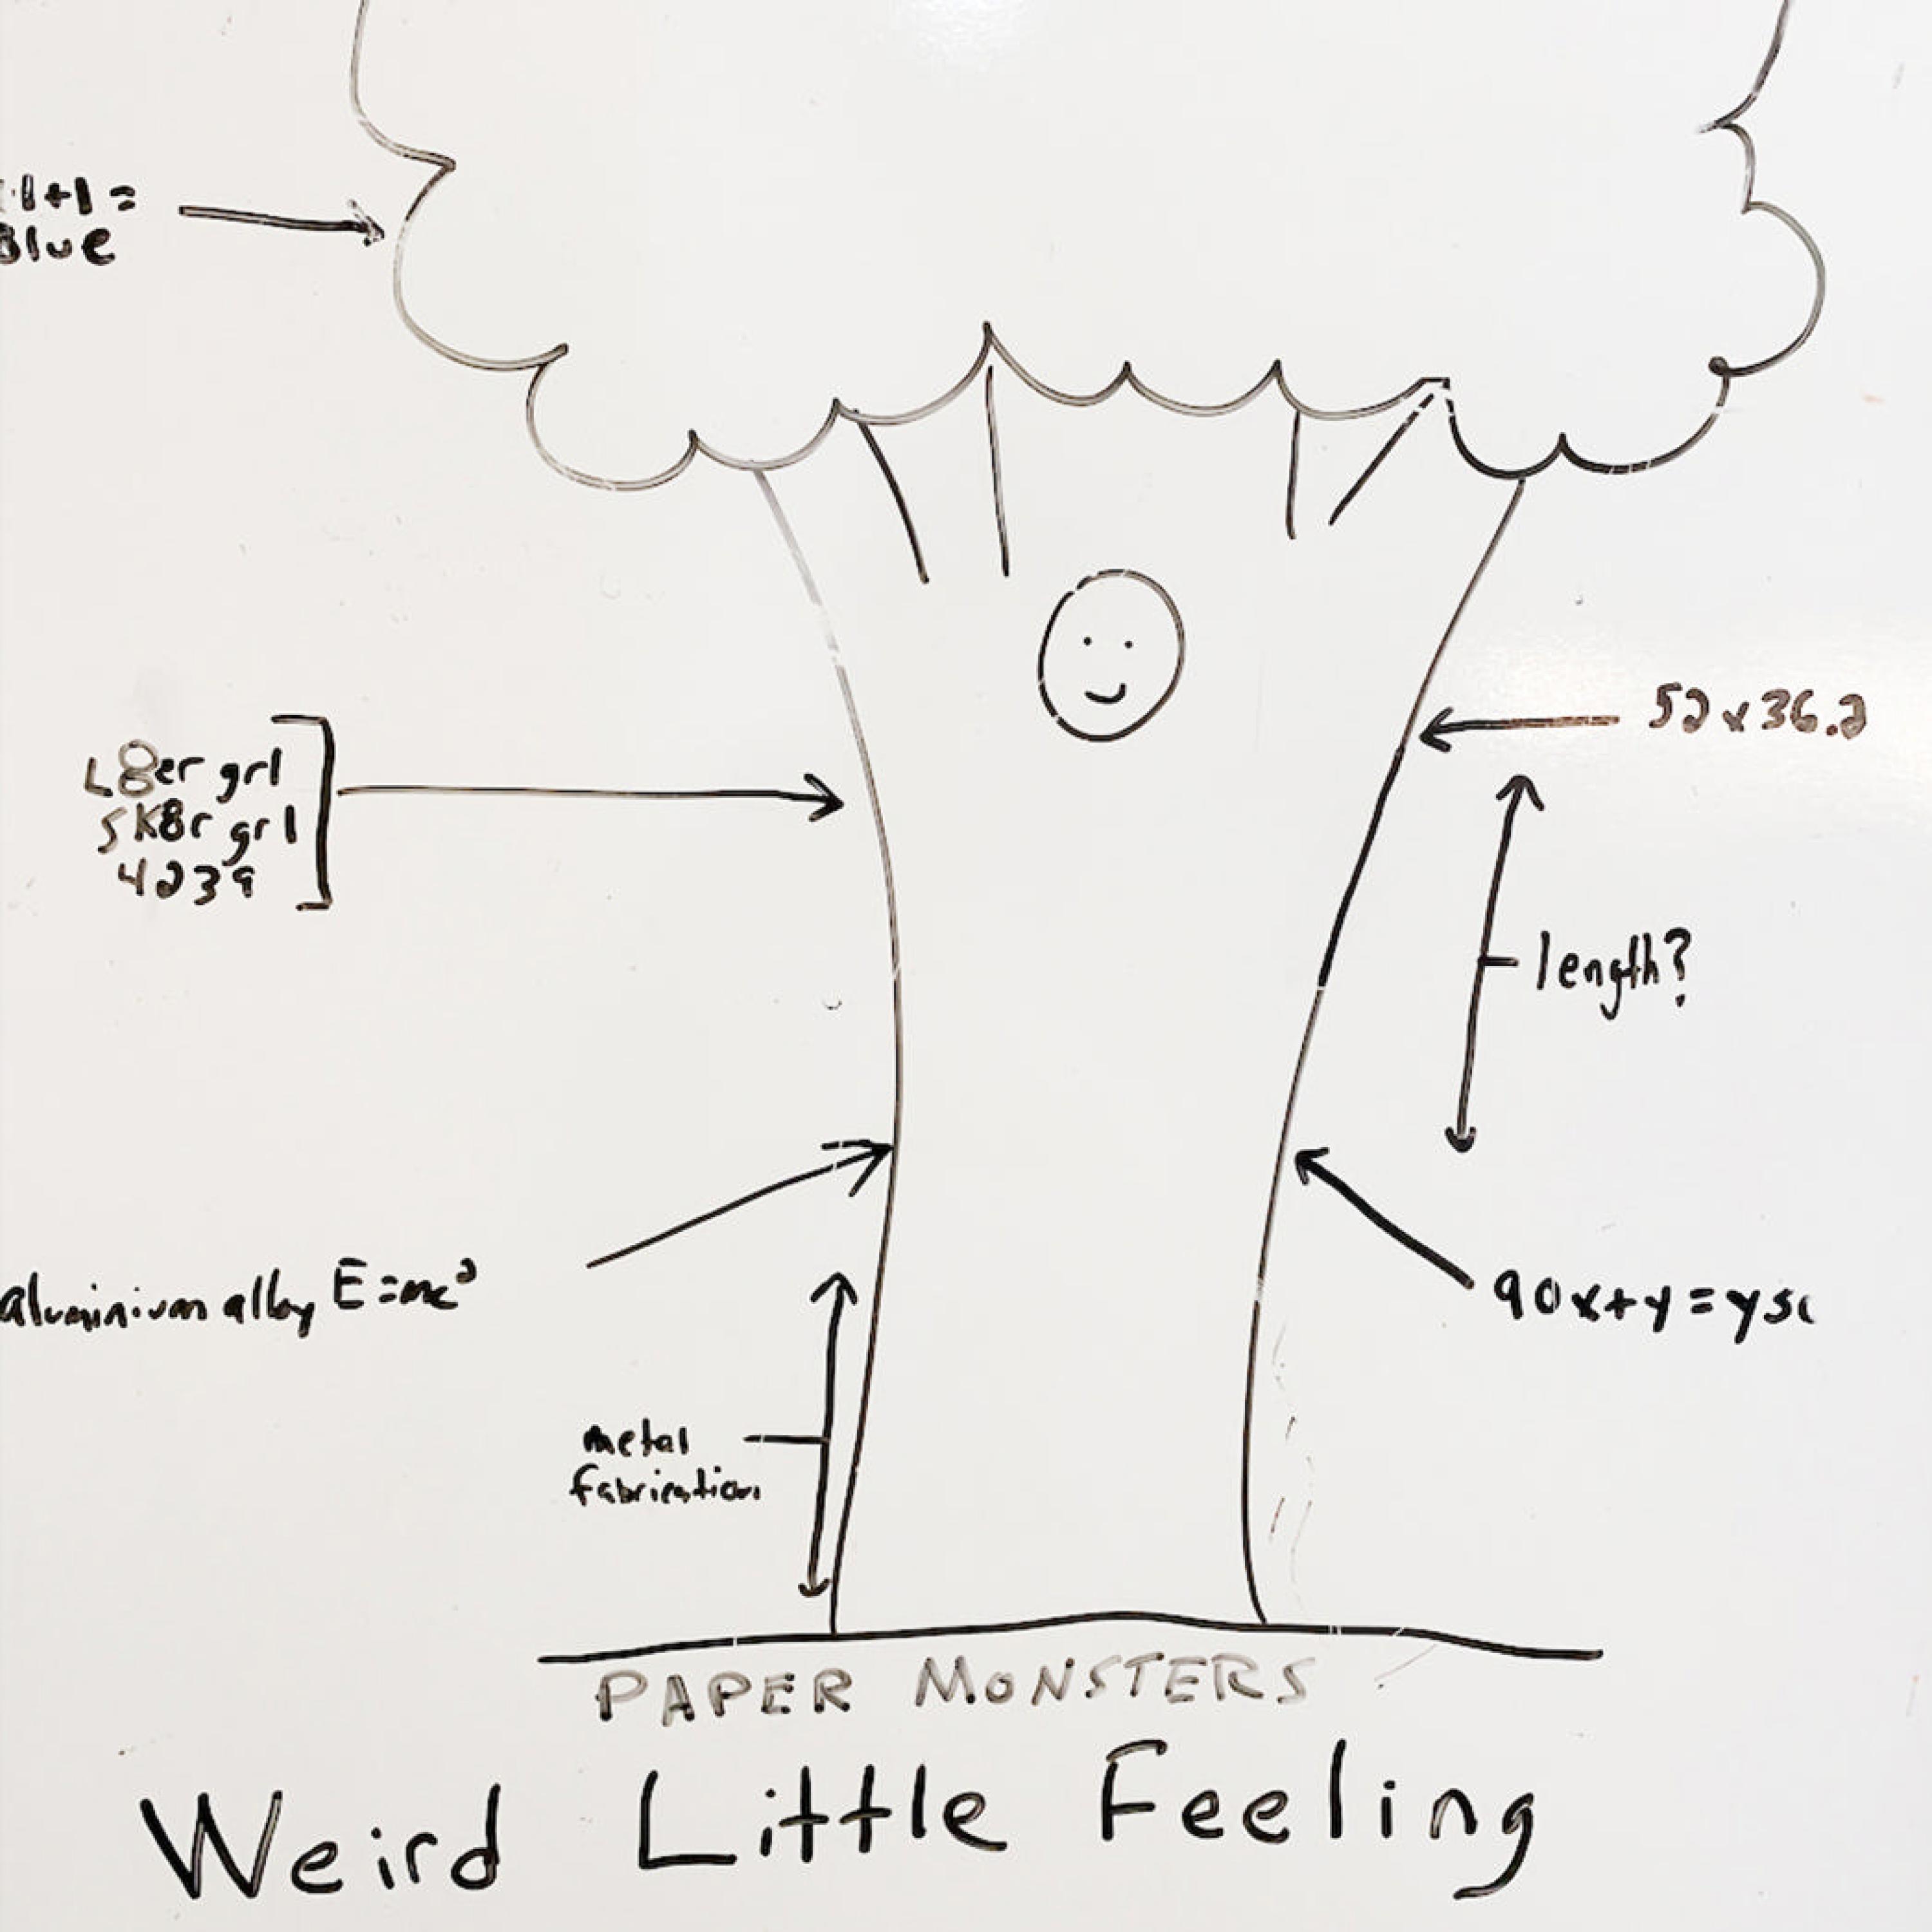 1+1=
Blue
L8er grl
SK8r grl
4239
52x36.2
length?
aluminium alloy E=mc²
90x+y=y
metal
fabrication
PAPER MONSTERS
Weird Little Feeling